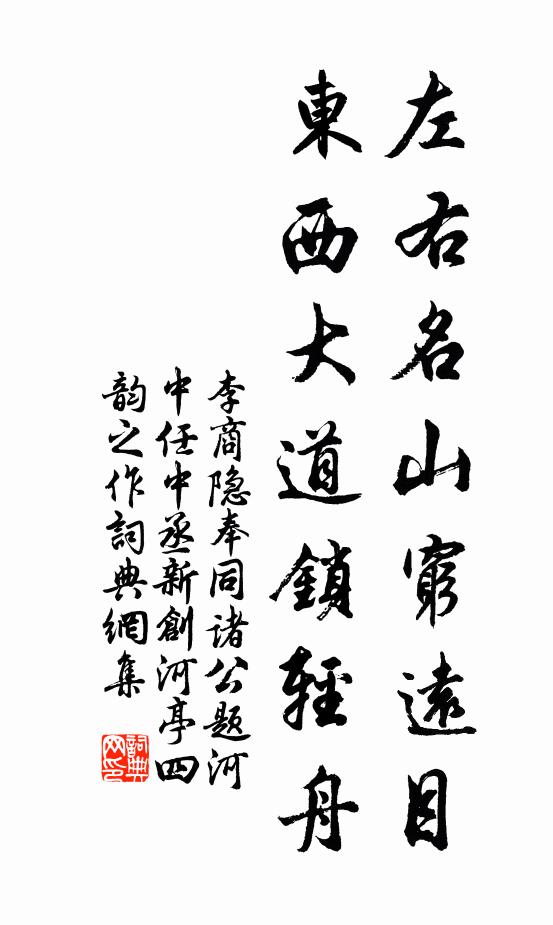 左右名山窮遠目
東西大道鎖輕舟
李商隐奉同诸公题河
中任中丞新創河亭四
韵之作詞典網集
詞典
网印